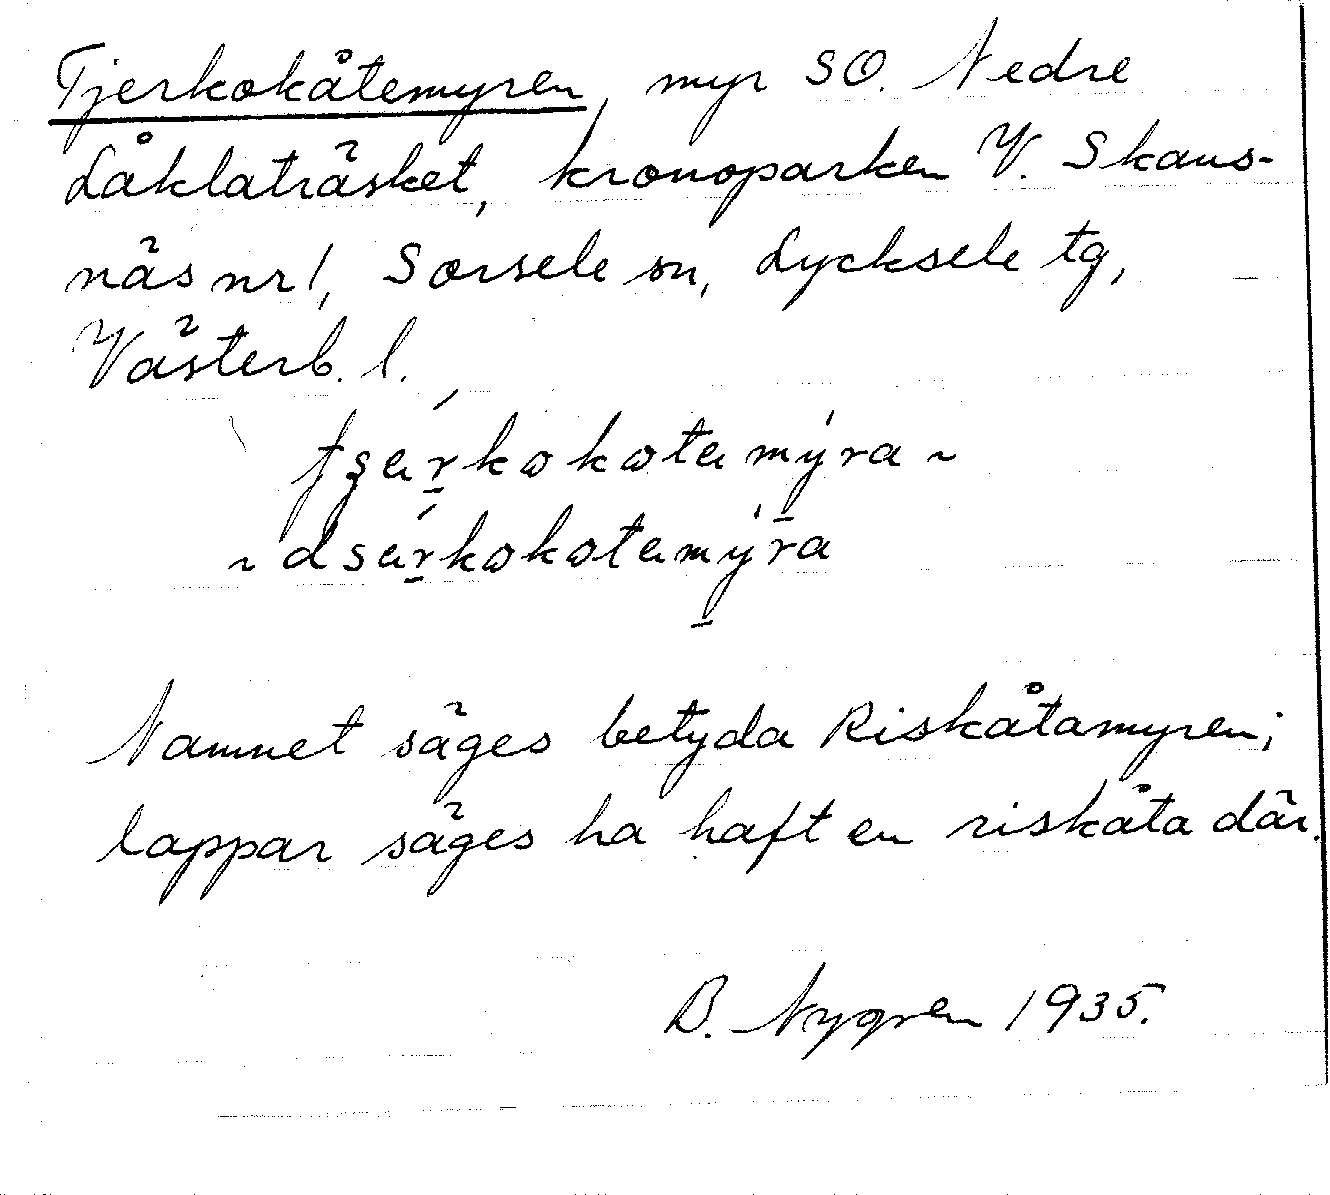 Tjerkokåtemyren, myr SO. Nedre
Låklaträsket, kronoparken V. Skans-
näs nr 1, Sorsele sn, Lycksele tg,
Västerb. l.
tʂær̥kωkωtamy̍ra ~
~ dsær̥kωkωtamy̍r̄a
Namnet säges betyda Riskåtamyren;
lappar säges ha haft en riskåta där.
B. Nygren 1935.